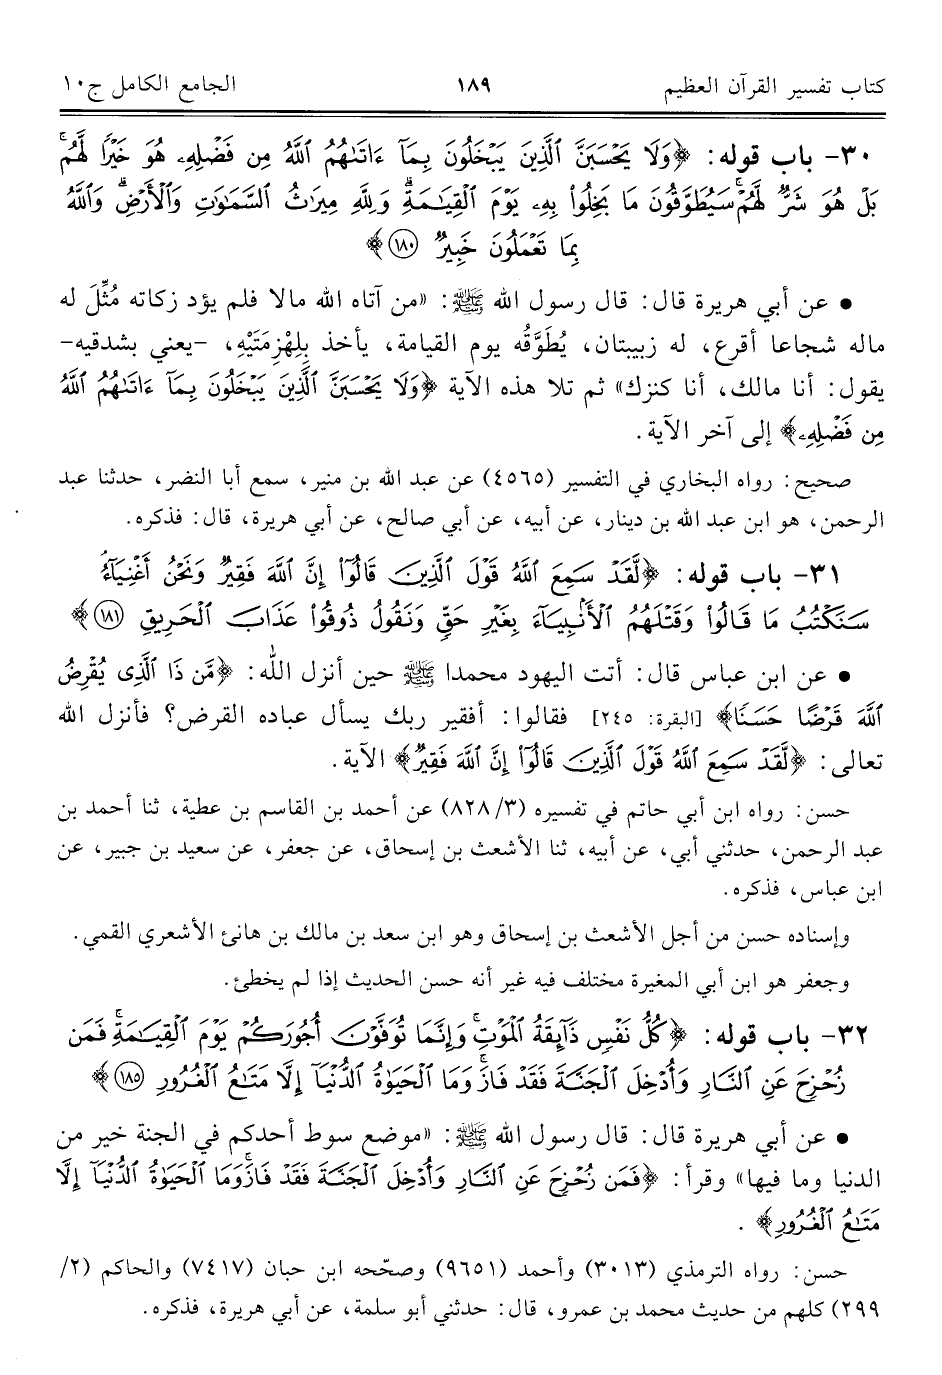 كتاب تفسير القرآن العظيم ١٨٩ الجامع الكامل ج١٠
٣٠- باب قوله: ﴿وَلَا يَحْسَبَنَّ ٱلَّذِينَ يَبْخَلُونَ بِمَآ ءَاتَىٰهُمُ ٱللَّهُ مِن فَضْلِهِۦ هُوَ خَيْرًا لَّهُمۖ
بَلْ هُوَ شَرٌّ لَّهُمْۖ سَيُطَوَّقُونَ مَا بَخِلُوا۟ بِهِۦ يَوْمَ ٱلْقِيَٰمَةِۗ وَلِلَّهِ مِيرَٰثُ ٱلسَّمَٰوَٰتِ وَٱلْأَرْضِۗ وَٱللَّهُ
بِمَا تَعْمَلُونَ خَبِيرٌ ١٨٠﴾
• عن أبي هريرة قال: قال رسول الله ﷺ: «من آتاه الله مالا فلم يؤد زكاته مُثِّلَ له
ماله شجاعا أقرع، له زبيبتان، يُطَوَّقُه يوم القيامة، يأخذ بِلِهْزِمَتَيْهِ، -يعني بشدقيه-
يقول: أنا مالك، أنا كنزك» ثم تلا هذه الآية ﴿وَلَا يَحْسَبَنَّ ٱلَّذِينَ يَبْخَلُونَ بِمَآ ءَاتَىٰهُمُ ٱللَّهُ
مِن فَضْلِهِۦ﴾ إلى آخر الآية.
صحيح: رواه البخاري في التفسير (٤٥٦٥) عن عبد الله بن منير، سمع أبا النضر، حدثنا عبد
الرحمن، هو ابن عبد الله بن دينار، عن أبيه، عن أبي صالح، عن أبي هريرة، قال: فذكره.
٣١- باب قوله: ﴿لَّقَدْ سَمِعَ ٱللَّهُ قَوْلَ ٱلَّذِينَ قَالُوٓا۟ إِنَّ ٱللَّهَ فَقِيرٌ وَنَحْنُ أَغْنِيَآءُۘ
سَنَكْتُبُ مَا قَالُوا۟ وَقَتْلَهُمُ ٱلْأَنۢبِيَآءَ بِغَيْرِ حَقٍّ وَنَقُولُ ذُوقُوا۟ عَذَابَ ٱلْحَرِيقِ ١٨١﴾
• عن ابن عباس قال: أتت اليهود محمدا ﷺ حين أنزل الله: ﴿مَّن ذَا ٱلَّذِى يُقْرِضُ
ٱللَّهَ قَرْضًا حَسَنًا﴾ [البقرة: ٢٤٥] فقالوا: أفقير ربك يسأل عباده القرض؟ فأنزل الله
تعالى: ﴿لَّقَدْ سَمِعَ ٱللَّهُ قَوْلَ ٱلَّذِينَ قَالُوٓا۟ إِنَّ ٱللَّهَ فَقِيرٌ﴾ الآية.
حسن: رواه ابن أبي حاتم في تفسيره (٣/ ٨٢٨) عن أحمد بن القاسم بن عطية، ثنا أحمد بن
عبد الرحمن، حدثني أبي، عن أبيه، ثنا الأشعث بن إسحاق، عن جعفر، عن سعيد بن جبير، عن
ابن عباس، فذكره.
وإسناده حسن من أجل الأشعث بن إسحاق وهو ابن سعد بن مالك بن هانئ الأشعري القمي.
وجعفر هو ابن أبي المغيرة مختلف فيه غير أنه حسن الحديث إذا لم يخطئ.
٣٢- باب قوله: ﴿كُلُّ نَفْسٍ ذَآئِقَةُ ٱلْمَوْتِۗ وَإِنَّمَا تُوَفَّوْنَ أُجُورَكُمْ يَوْمَ ٱلْقِيَٰمَةِۖ فَمَن
زُحْزِحَ عَنِ ٱلنَّارِ وَأُدْخِلَ ٱلْجَنَّةَ فَقَدْ فَازَۗ وَمَا ٱلْحَيَوٰةُ ٱلدُّنْيَآ إِلَّا مَتَٰعُ ٱلْغُرُورِ ١٨٥﴾
• عن أبي هريرة قال: قال رسول الله ﷺ: «موضع سوط أحدكم في الجنة خير من
الدنيا وما فيها» وقرأ: ﴿فَمَن زُحْزِحَ عَنِ ٱلنَّارِ وَأُدْخِلَ ٱلْجَنَّةَ فَقَدْ فَازَۗ وَمَا ٱلْحَيَوٰةُ ٱلدُّنْيَآ إِلَّا
مَتَٰعُ ٱلْغُرُورِ﴾.
حسن: رواه الترمذي (٣٠١٣) وأحمد (٩٦٥١) وصحّحه ابن حبان (٧٤١٧) والحاكم (٢/
٢٩٩) كلهم من حديث محمد بن عمرو، قال: حدثني أبو سلمة، عن أبي هريرة، فذكره.